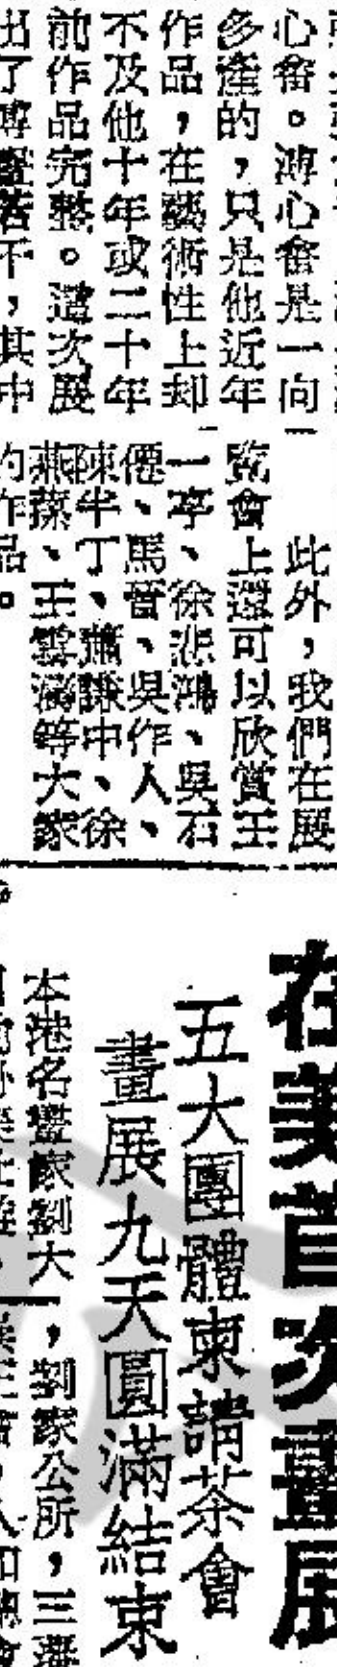 心畬。溥心畬是一向
多產的，只是他近年
作品，在藝術性上却
不及他十年或二十年
前作品完整。這次展
出了溥
不，其中
此外，我們在展
覽會上還可以欣賞王
一亭、徐悲鴻、吳石
僊、馬晉、吳作人、
陳半丁、蕭謙中、徐
燕蓀、王雲濤等大家
的作品。
在美首次畫展
五大團體柬請茶會
畫展九天圓滿結束
本港名畫家劉大
，劉家公所，三藩